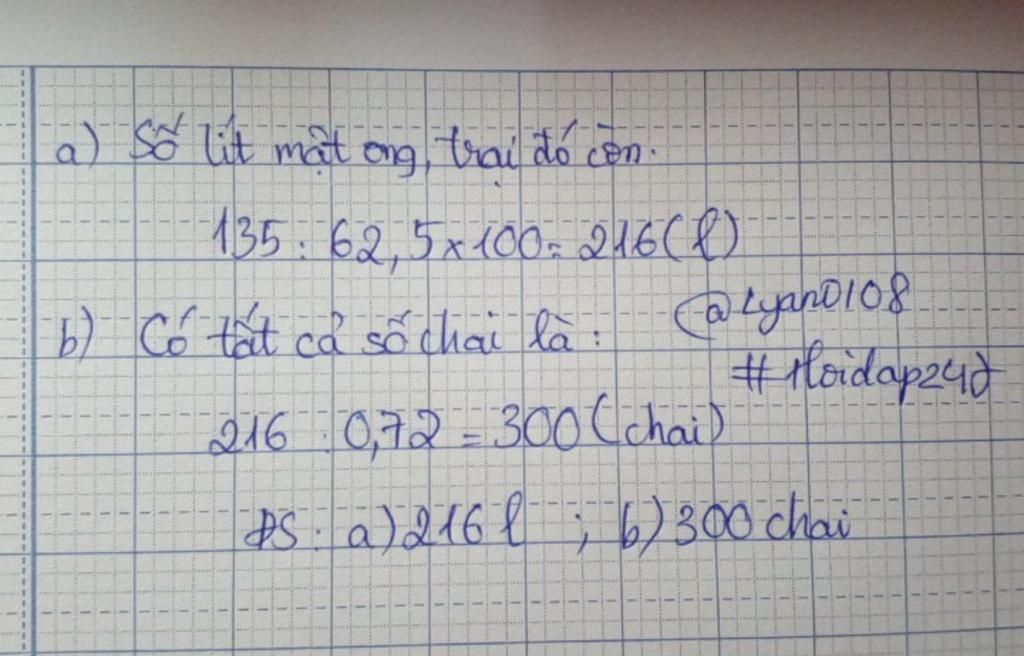 a) Số lít mật ong, trại đó còn.
135 : 62,5 x 100 = 216 (l)
b) Có tất cả số chai là :
@Lyan0108
#Hoidap247
216 : 0,72 = 300 (chai)
ĐS : a) 216 l ; b) 300 chai